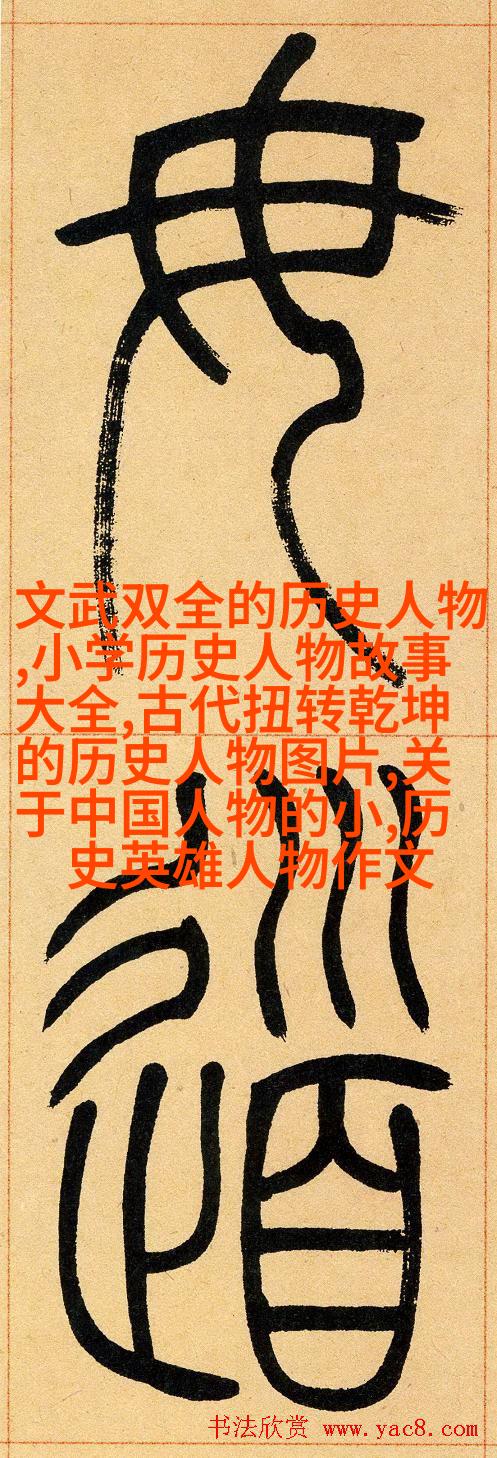 毋
文武双全的历史人物
,小学历史人物故事
大全,古代扭转乾坤
的历史人物图片,关
于中国人物的小,历
史英雄人物作文
道
书法欣赏 www.yac8.com